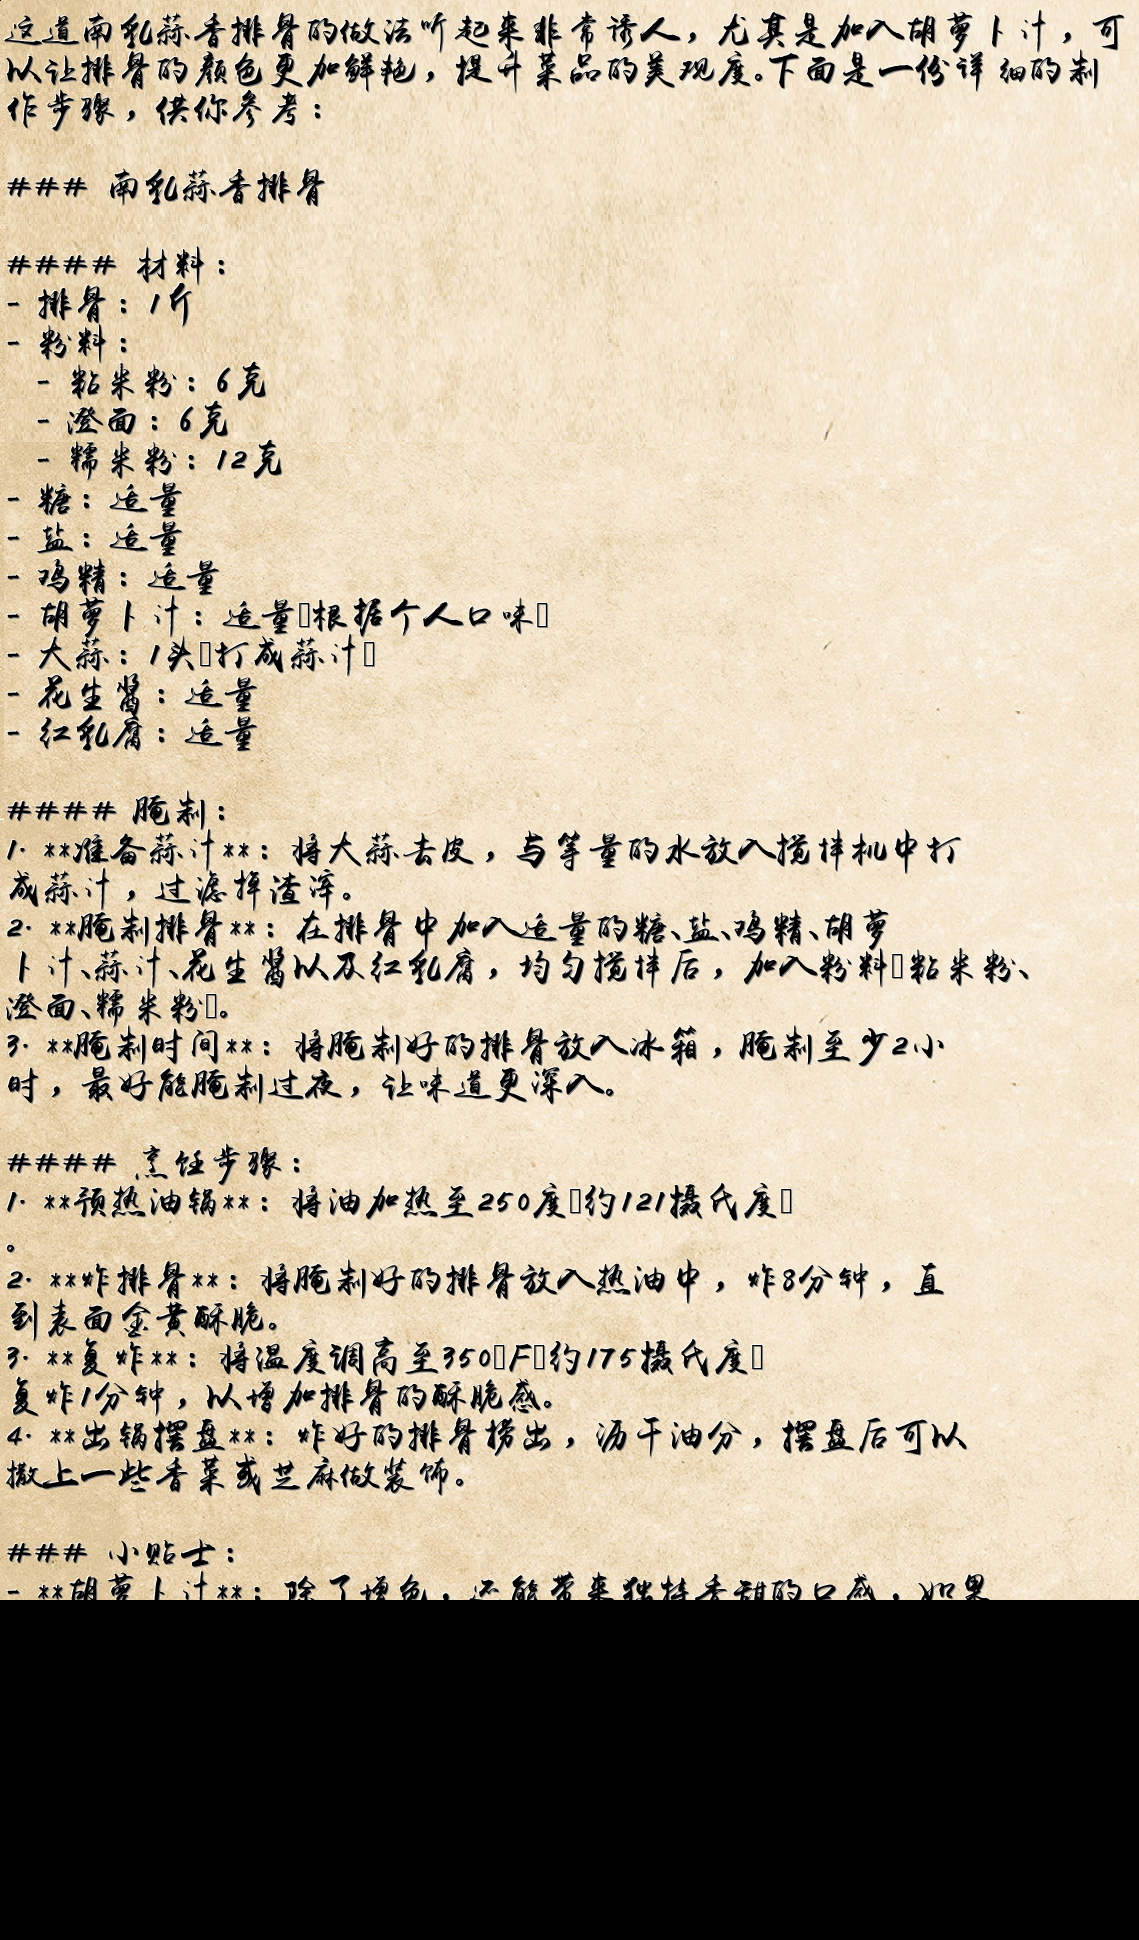 这道南乳蒜香排骨的做法听起来非常诱人，尤其是加入胡萝卜汁，可
以让排骨的颜色更加鲜艳，提升菜品的美观度。下面是一份详细的制
作步骤，供你参考：
### 南乳蒜香排骨
#### 材料：
- 排骨：1斤
- 粉料：
- 粘米粉：6克
- 澄面：6克
- 糯米粉：12克
- 糖：适量
- 盐：适量
- 鸡精：适量
- 胡萝卜汁：适量▯根据个人口味▯
- 大蒜：1头▯打成蒜汁▯
- 花生酱：适量
- 红乳腐：适量
#### 腌制：
1. **准备蒜汁**：将大蒜去皮，与等量的水放入搅拌机中打
成蒜汁，过滤掉渣滓。
2. **腌制排骨**：在排骨中加入适量的糖、盐、鸡精、胡萝
卜汁、蒜汁、花生酱以及红乳腐，均匀搅拌后，加入粉料▯粘米粉、
澄面、糯米粉▯。
3. **腌制时间**：将腌制好的排骨放入冰箱，腌制至少2小
时，最好能腌制过夜，让味道更深入。
#### 烹饪步骤：
1. **预热油锅**：将油加热至250度▯约121摄氏度▯
。
2. **炸排骨**：将腌制好的排骨放入热油中，炸8分钟，直
到表面金黄酥脆。
3. **复炸**：将温度调高至350▯F▯约175摄氏度▯
复炸1分钟，以增加排骨的酥脆感。
4. **出锅摆盘**：炸好的排骨捞出，沥干油分，摆盘后可以
撒上一些香菜或芝麻做装饰。
### 小贴士：
- **胡萝卜汁**：除了增色，还能带来独特香甜的口感，如果